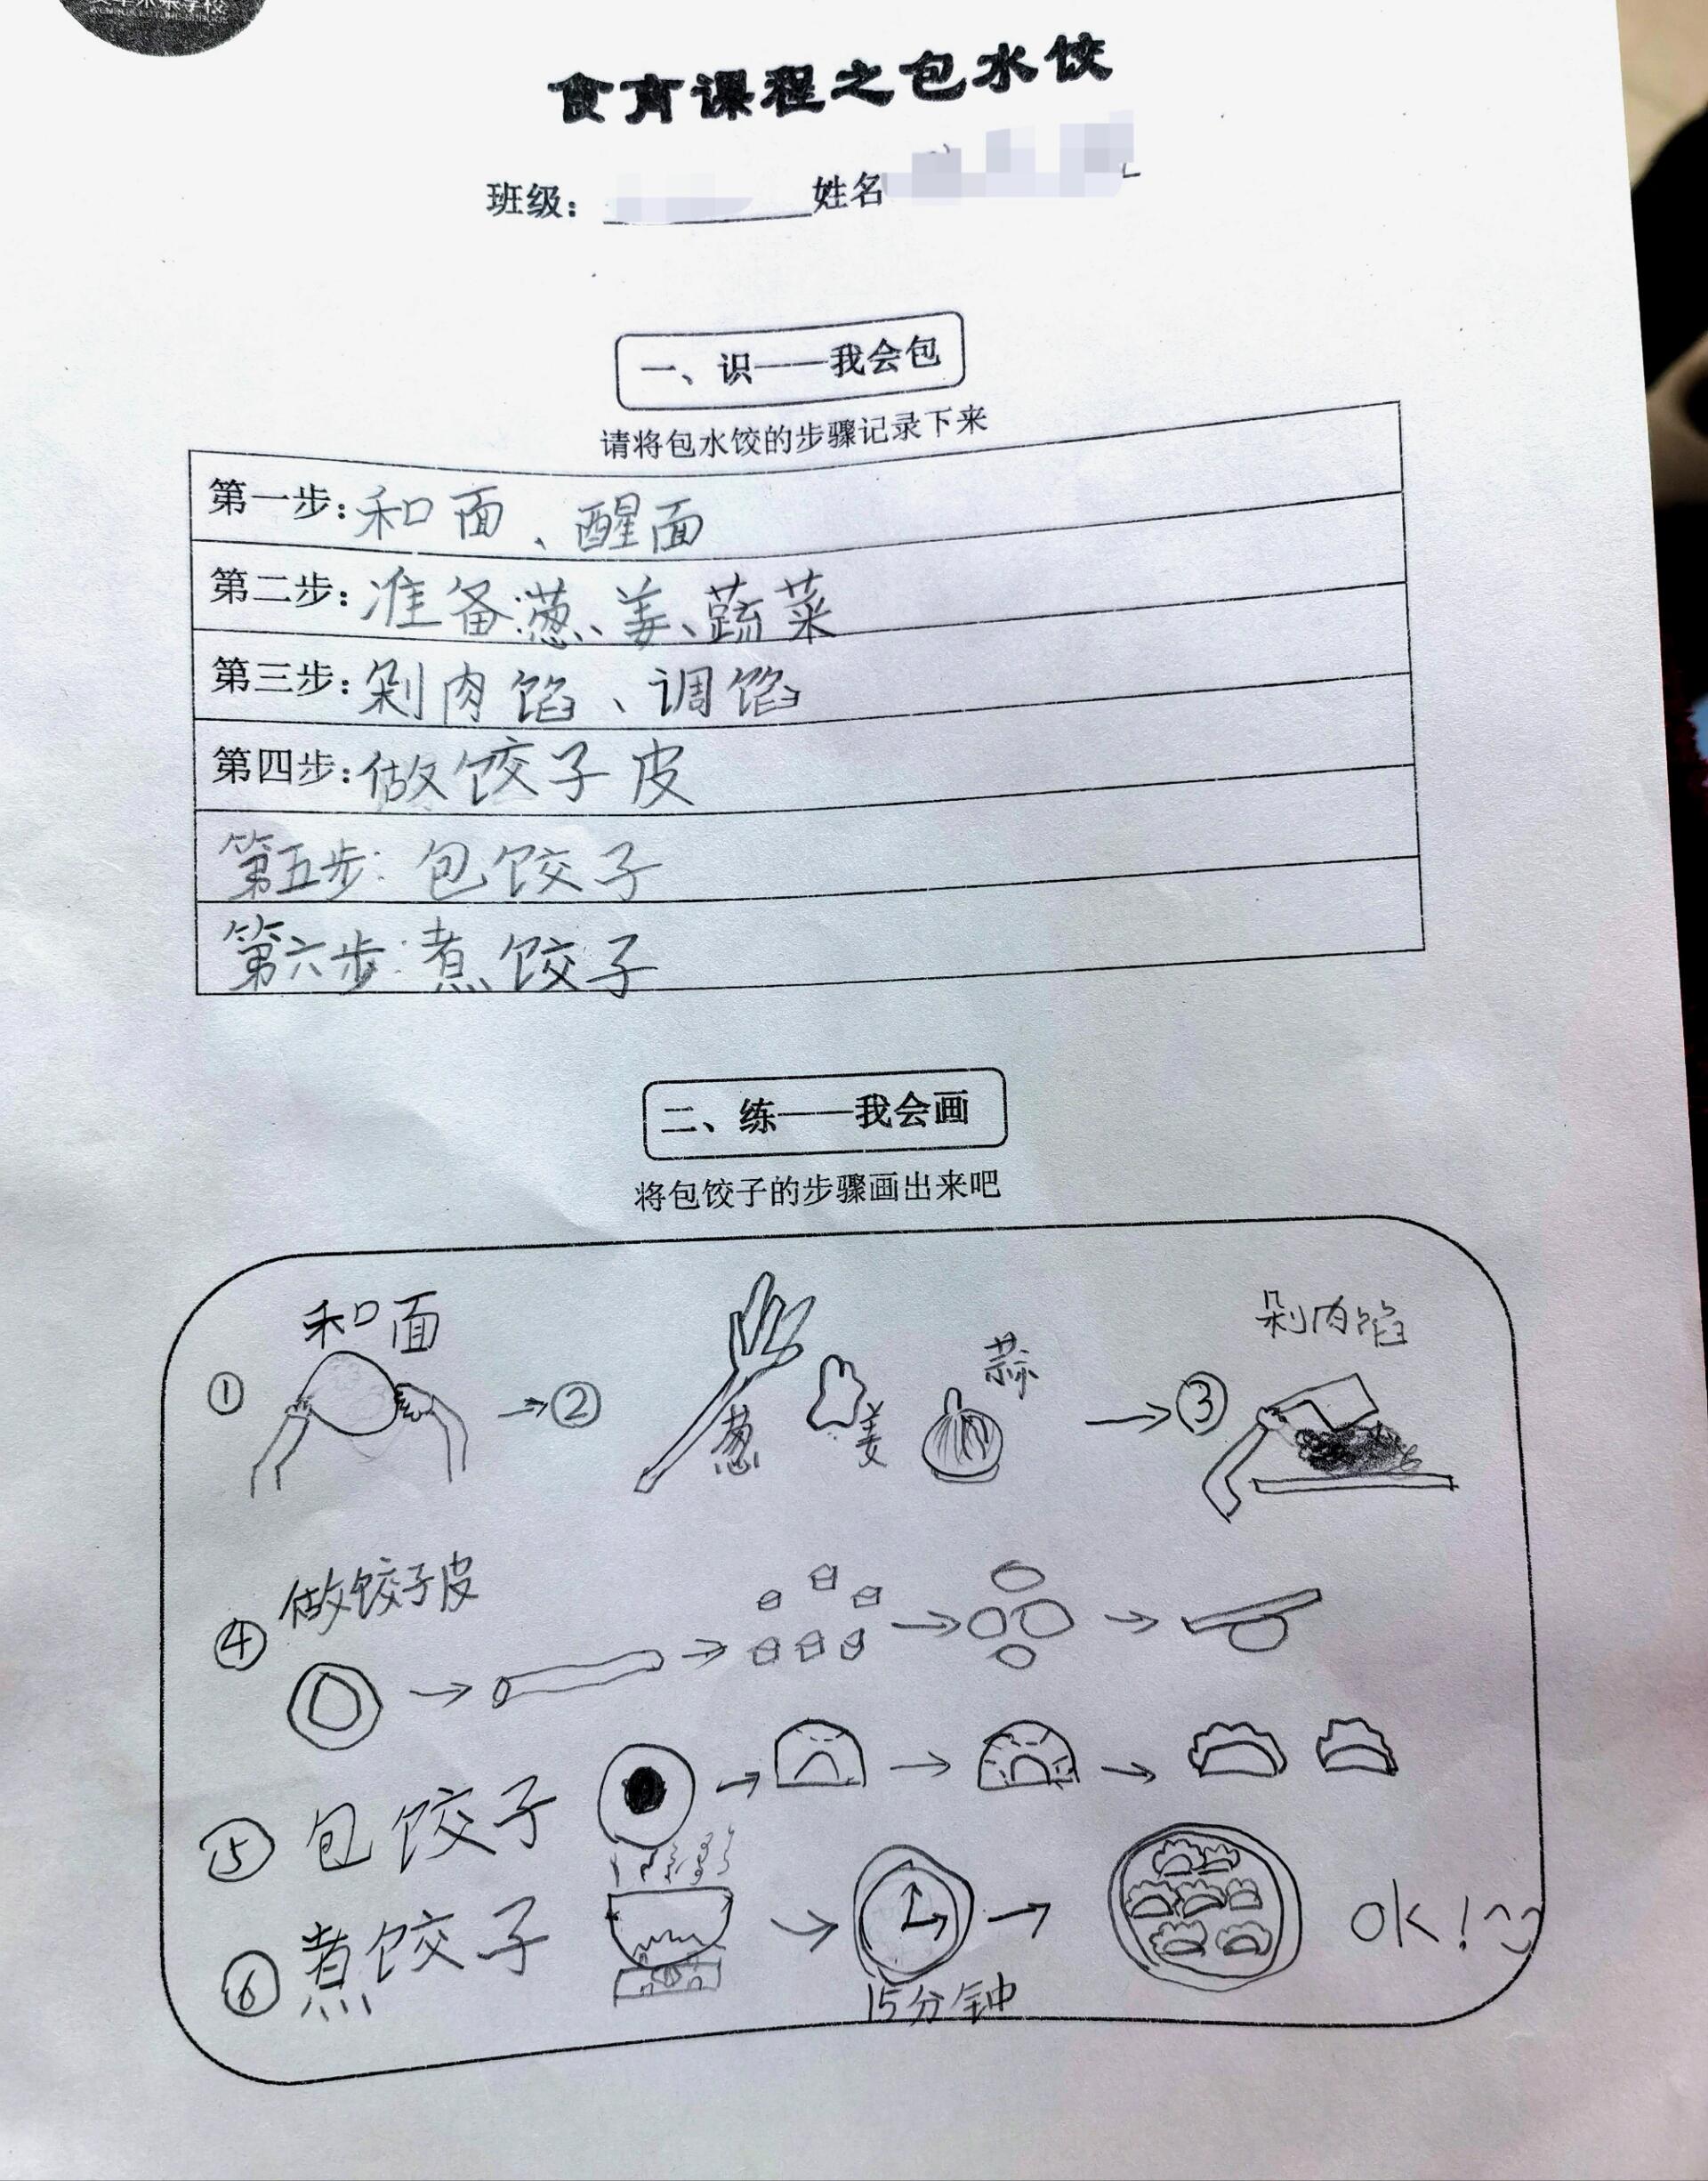 食育课程之包水饺
班级： 姓名
一、识——我会包
请将包水饺的步骤记录下来
第一步：和面、醒面
第二步：准备：葱、姜、蔬菜
第三步：剁肉馅、调馅
第四步：做饺子皮
第五步：包饺子
第六步：煮饺子
二、练——我会画
将包饺子的步骤画出来吧
① 和面 → ② 葱 姜 蒜 → ③ 剁肉馅
④ 做饺子皮
⑤ 包饺子
⑥ 煮饺子 15分钟 OK！